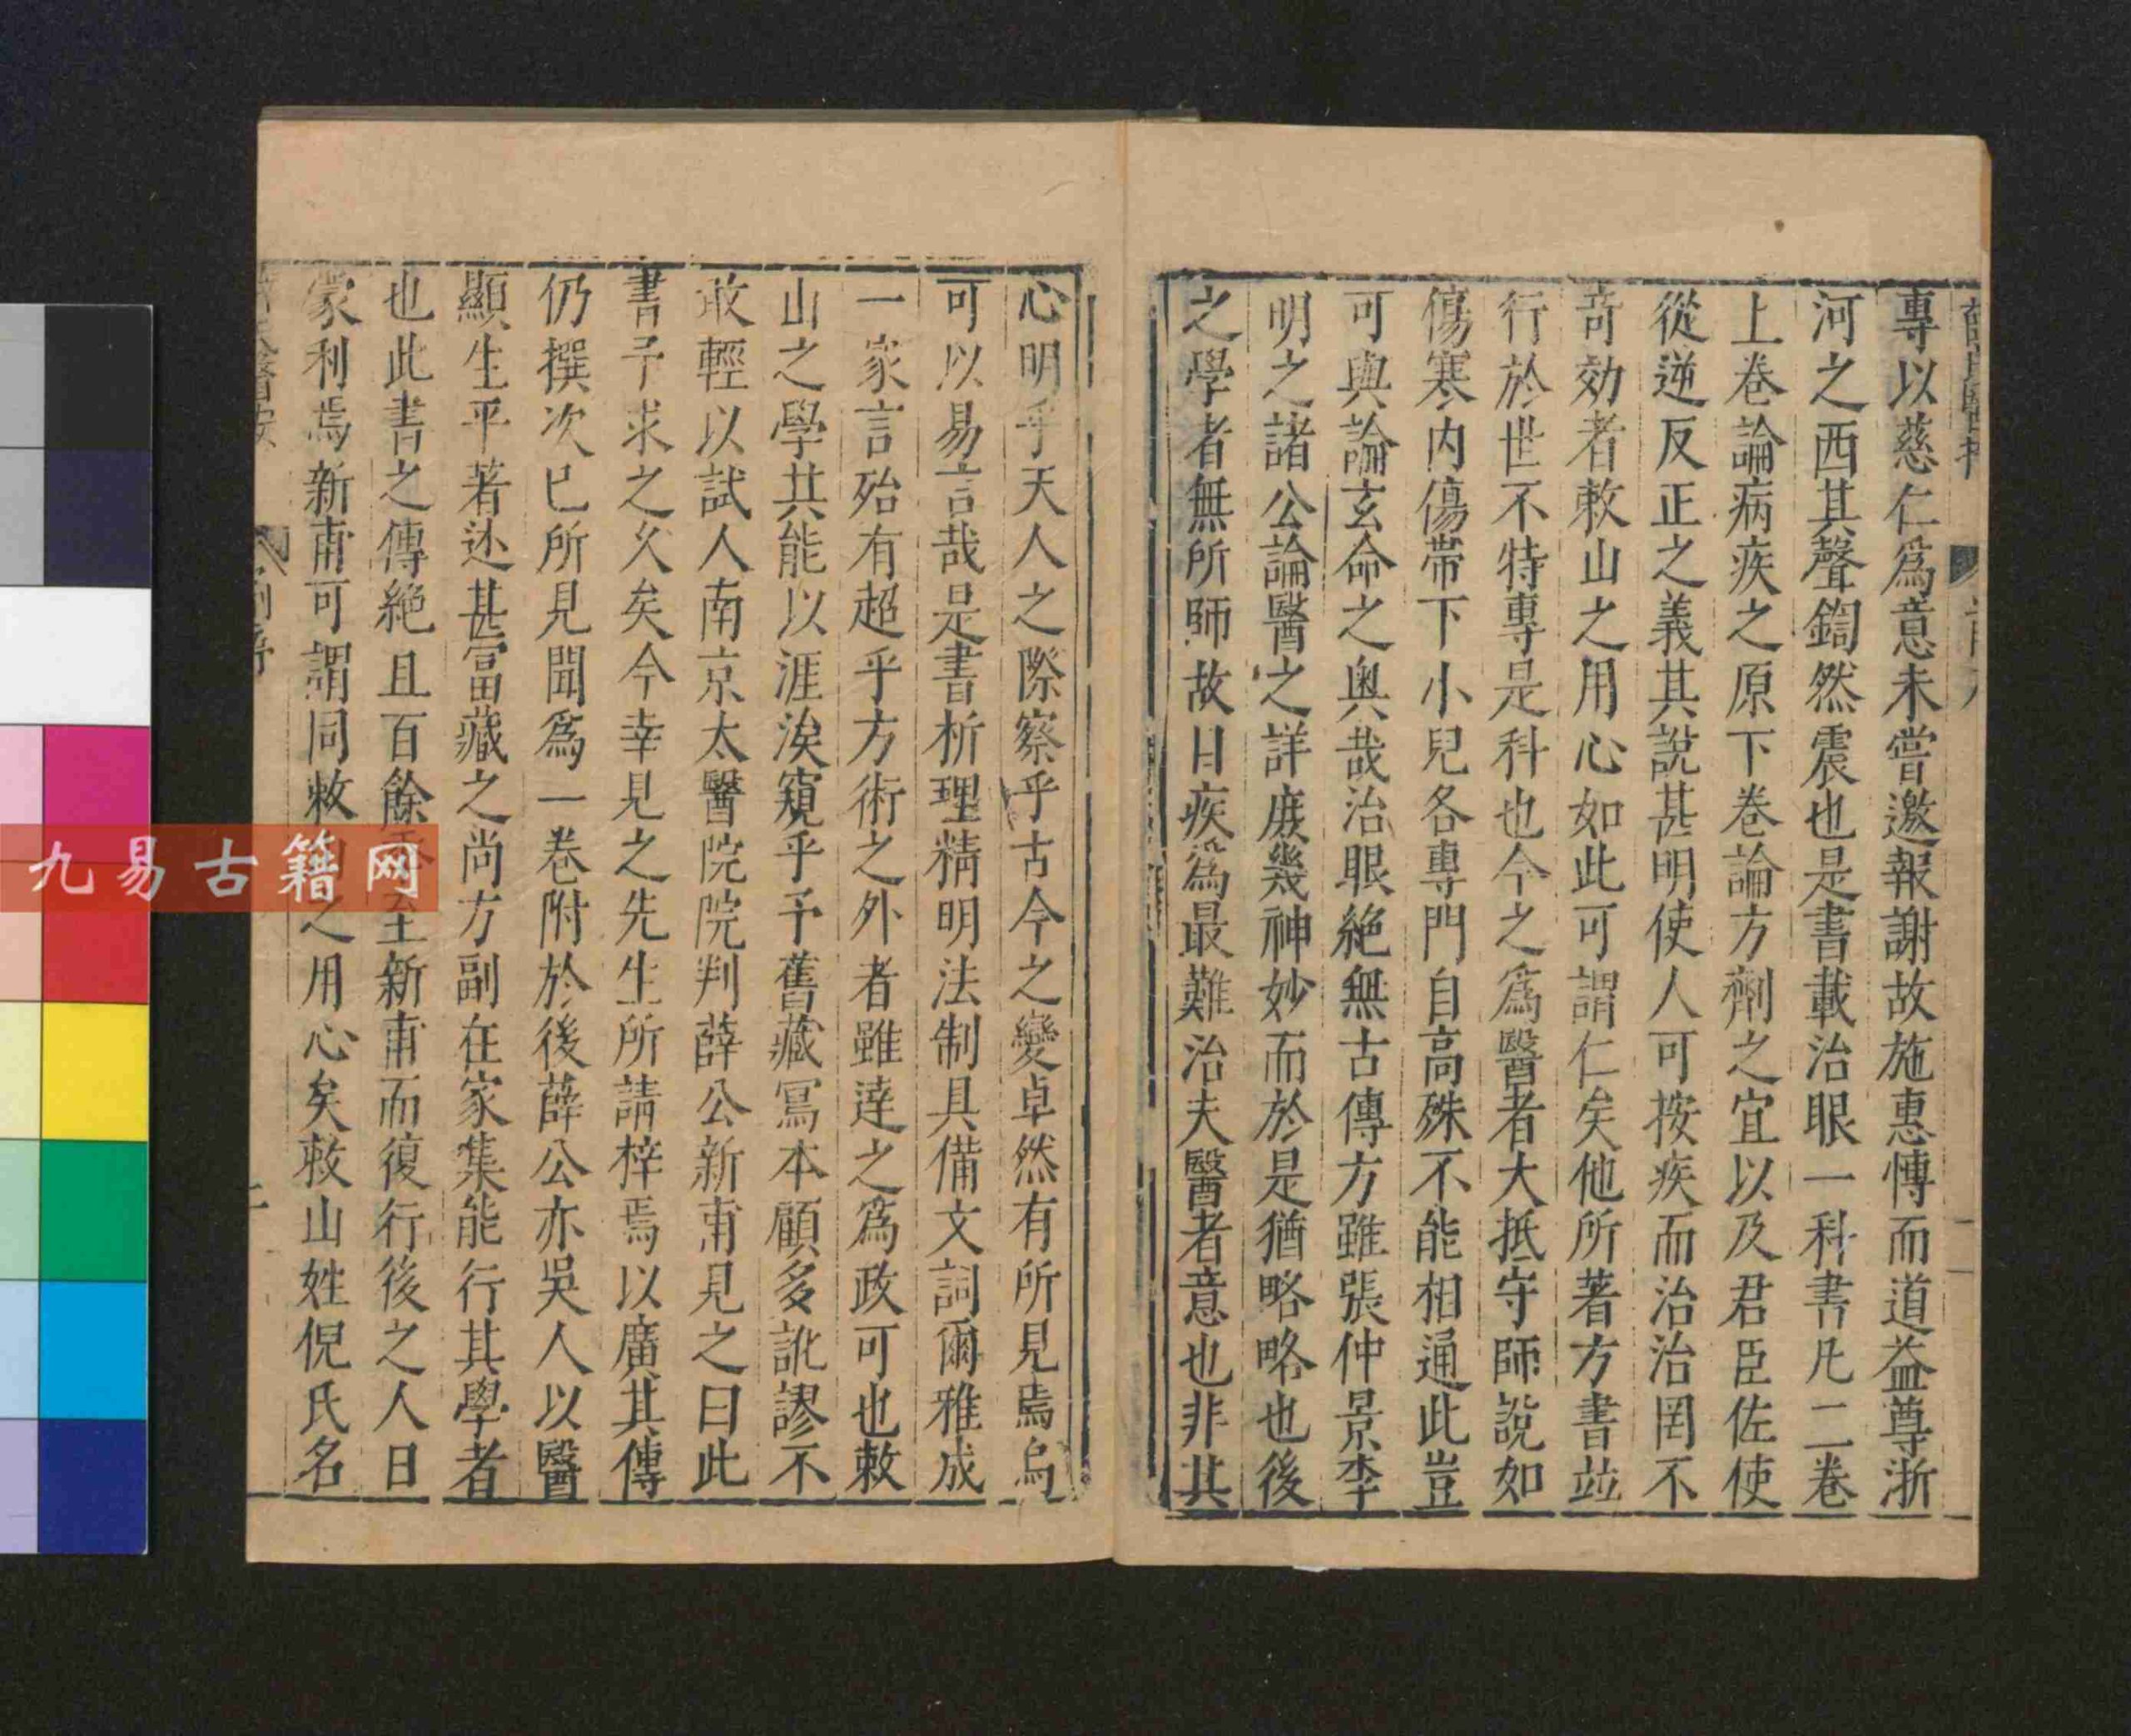 專以慈仁爲意未嘗邀報謝故施惠慱而道益尊浙
河之西其聲鍧然震也是書載治眼一科書凡二卷
上卷論病疾之原下卷論方劑之宜以及君臣佐使
從逆反正之義其說甚明使人可按疾而治治罔不
奇効者敕山之用心如此可謂仁矣他所著方書並
行於世不特專是科也今之爲醫者大抵守師說如
傷寒內傷帶下小兒各專門自高殊不能相通此豈
可與論玄命之奥哉治眼絕無古傳方雖張仲景李
明之諸公論醫之詳庶幾神妙而於是猶略略也後
之學者無所師故日疾爲最難治夫醫者意也非其
心明乎天人之際察乎古今之變卓然有所見焉烏
可以易言哉是書析理精明法制具備文詞爾雅成
一家言殆有超乎方術之外者雖達之爲政可也敕
山之學其能以涯涘窺乎予舊藏冩本顧多訛謬不
敢輕以試人南京太醫院院判薛公新甫見之曰此
書予求之久矣今幸見之先生所請梓焉以廣其傳
仍撰次已所見聞爲一卷附於後薛公亦吳人以醫
顯生平著述甚富藏之尚方副在家集能行其學者
也此書之傳絕且百餘至新甫而復行後之人日
蒙利焉新甫可謂同敕之用心矣敕山姓倪氏名
九易古籍网